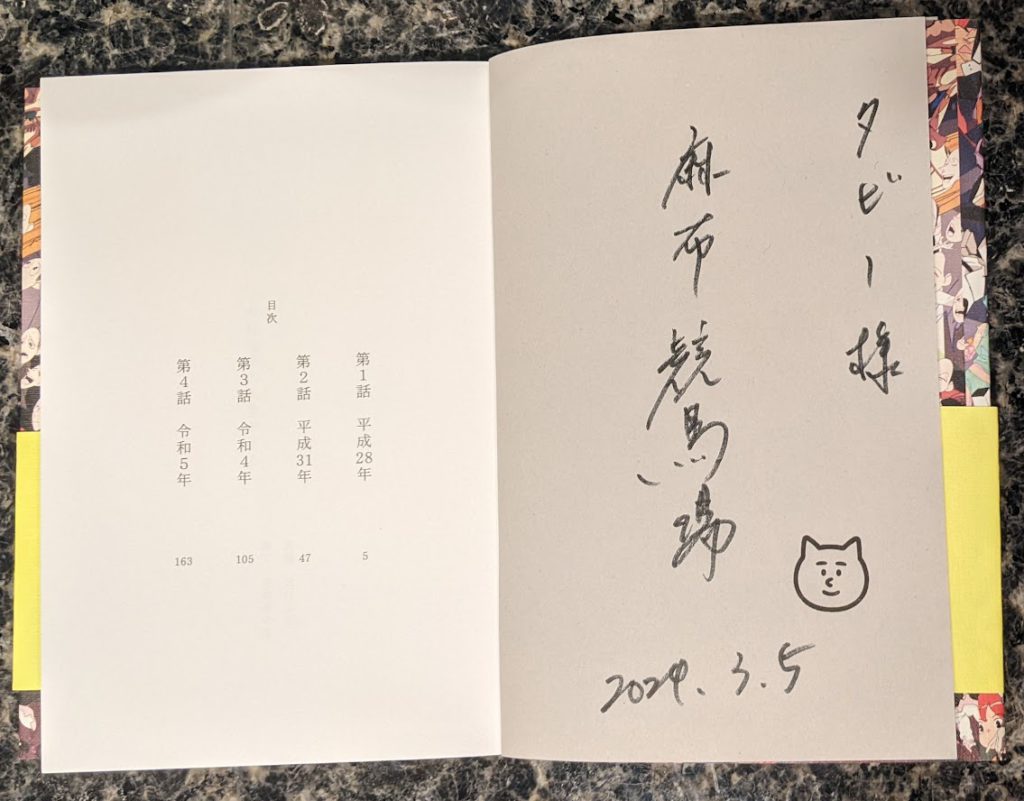 タビー様
麻布競馬場
2024.3.5
目次
第1話 平成28年 5
第2話 平成31年 47
第3話 令和4年 105
第4話 令和5年 163